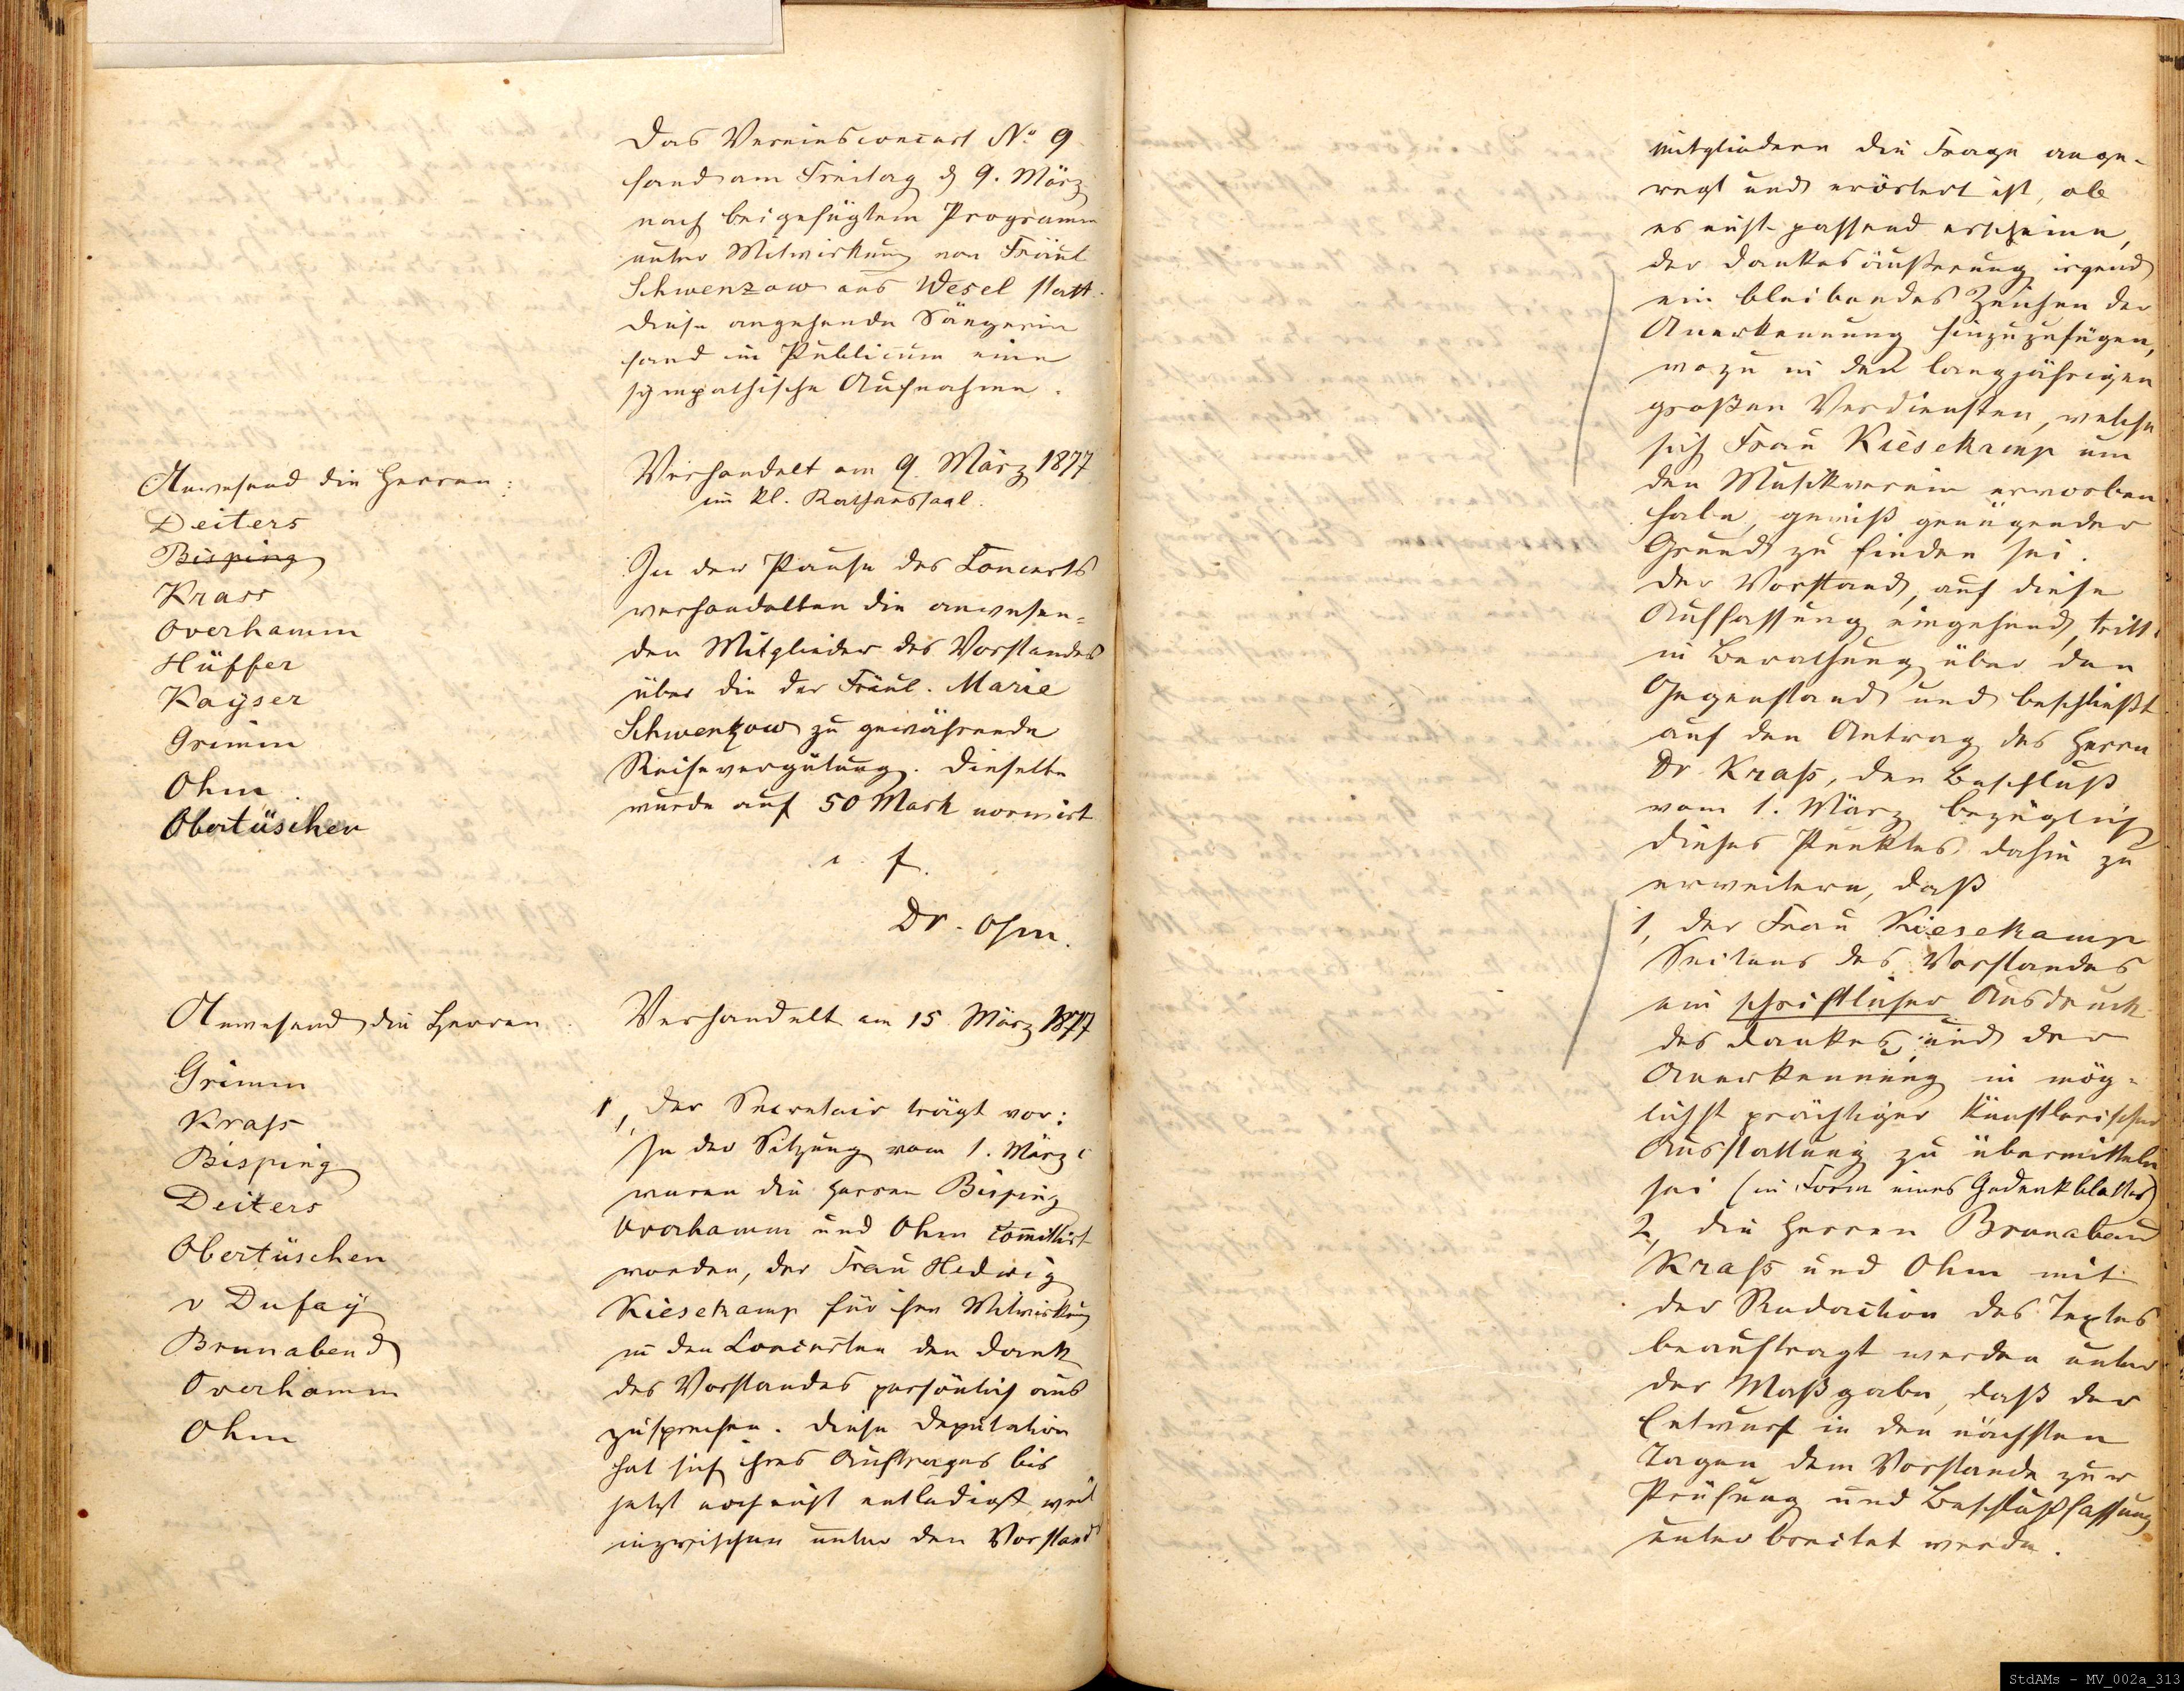 Das Vereinsconcert No 9
fand am Freitag d 9. März
nach beigefügtem Programm
unter Mitwirkung von Fräul
Schwenzow aus Wesel statt.
Diese angehende Sängerin
fand im Publicum eine
sympathische Aufnahme.
Anwesend die Herren:
Deiters
Bisping
Krass
Overhamm
Hüffer
Kayser
Grimm
Ohm
Obertüschen
Verhandelt am 9. März 1877
im kl. Rathaussaal.
In der Pause des Concerts
verhandelten die anwesen=
den Mitglieder des Vorstandes
über die der Fräul. Marie
Schwentzow zu gewährende
Reisevergütung. Dieselbe
wurde auf 50 Mark normirt
Dr. Ohm.
Anwesend die Herren:
Grimm
Krass
Bisping
Deiters
Obertüschen
v Dufay
Brunabend
Overhamm
Ohm
Verhandelt am 15 März 1877
1, Der Secretair trägt vor:
In der Sitzung vom 1. März c
waren die Herren Bisping
Overhamm und Ohm committirt
worden, der Frau Hedwig
Kiesekamp für ihre Mitwirkung
in den Concerten den Dank
des Vorstandes persönlich aus
zusprechen. Diese Deputation
hat sich ihres Auftrages bis
jetzt noch nicht entledigt, weil
inzwischen unter den Vorstands
mitgliedern die Frage ange-
regt und erörtert ist, ob
es nicht passend erscheine,
der Dankesäußerung irgend
ein bleibendes Zeichen der
Anerkennung hinzuzufügen,
wozu in den langjährigen
großen Verdiensten, welche
sich Frau Kiesekamp um
den Musikverein erworben
habe, gewiß genügender
Grund zu finden sei.
Der Vorstand, auf diese
Auffassung eingehend, tritt
in Berathung über den
Gegenstand und beschließt
auf den Antrag des Herrn
Dr. Krass, den Beschluß
vom 1. März bezüglich
dieses Punktes dahin zu
erweitern, daß
1, der Frau Kiesekamp
Seitens des Vorstandes
ein schriftlicher Ausdruck
des Dankes und der
Anerkennung in mög=
lichst prächtiger künstlerischer
Ausstattung zu übermitteln
sei (in Form eines Gedenkblattes)
2, die Herren Brunabend
Krass und Ohm mit
der Redaction des Textes
beauftragt werden unter
der Maßgabe, daß der
Entwurf in den nächsten
Tagen dem Vorstande zur
Prüfung und Beschlußfassung
unterbreitet werde.
StdAMs - MV_002a_313